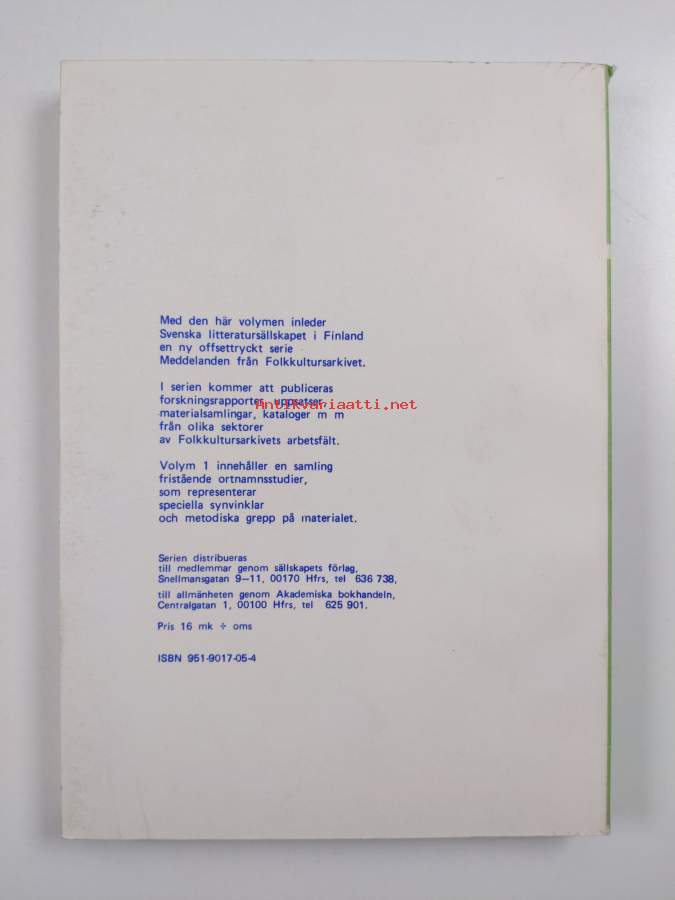 Med den här volymen inleder
Svenska litteratursällskapet i Finland
en ny offsettryckt serie
Meddelanden från Folkkultursarkivet.
I serien kommer att publiceras
forskningsrapporter, uppsatser,
Antikvariaatti.net
materialsamlingar, kataloger m m
från olika sektorer
av Folkkultursarkivets arbetsfält.
Volym 1 innehåller en samling
fristående ortnamnsstudier,
som representerar
speciella synvinklar
och metodiska grepp på materialet.
Serien distribueras
till medlemmar genom sällskapets förlag,
Snellmansgatan 9–11, 00170 Hfrs, tel 636 738,
till allmänheten genom Akademiska bokhandeln,
Centralgatan 1, 00100 Hfrs, tel 625 901.
Pris 16 mk ÷ oms
ISBN 951-9017-05-4